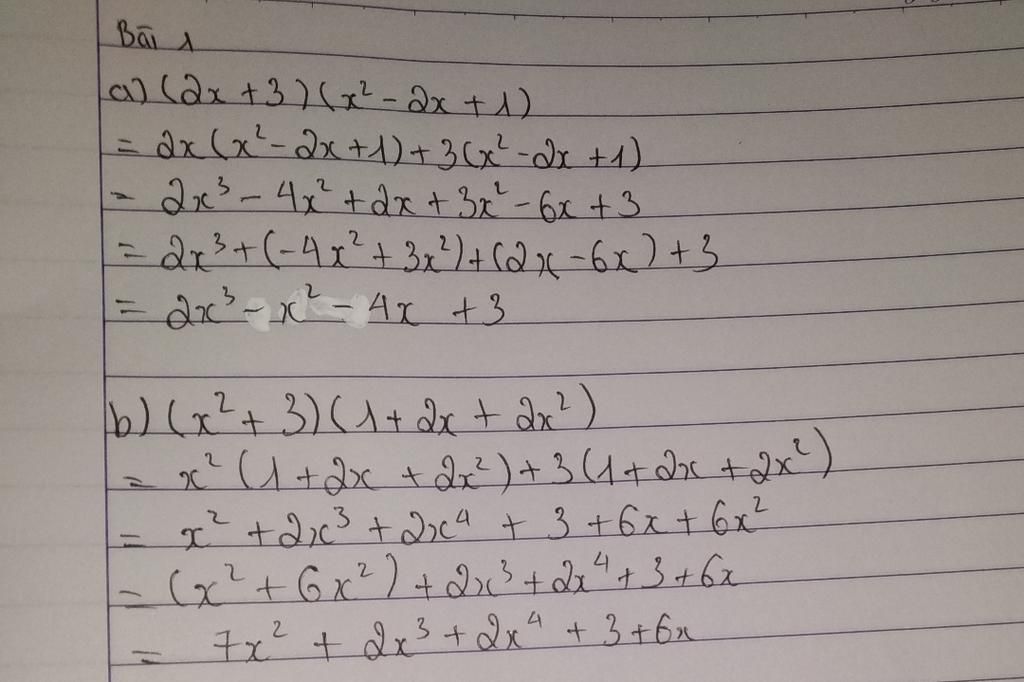 Bài 1
a) (2x + 3)(x² - 2x + 1)
= 2x(x² - 2x + 1) + 3(x² - 2x + 1)
= 2x³ - 4x² + 2x + 3x² - 6x + 3
= 2x³ + (-4x² + 3x²) + (2x - 6x) + 3
= 2x³ - x² - 4x + 3
b) (x² + 3)(1 + 2x + 2x²)
= x² (1 + 2x + 2x²) + 3(1 + 2x + 2x²)
= x² + 2x³ + 2x⁴ + 3 + 6x + 6x²
= (x² + 6x²) + 2x³ + 2x⁴ + 3 + 6x
= 7x² + 2x³ + 2x⁴ + 3 + 6x